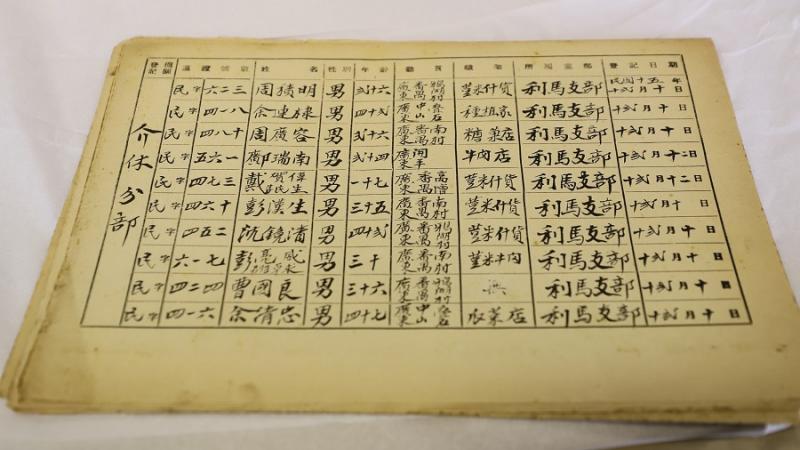 登記機關 黨證號數 姓名 性別 年齡 籍貫 職業 所屬黨部 登記日期
民字六二三 周 明 男 弍十六 廣東番禺鴉湖村 荳米什貨 利馬支部 民國十五年十弍月十日
民字四一八 余連 男 四十弍 廣東中山 種植家 利馬支部 十弍月十日
民字四八十 周廣容 男 弍十六 廣東番禺南村 糖菓店 利馬支部 十弍月十日
民字五六一 鄺瑞南 男 弍十四 廣東開平 牛肉店 利馬支部 十弍月十二日
民字四七三 戴 男 一十七 廣東番禺高增 荳米什貨 利馬支部 十弍月十二日
民字四六十 彭漢生 男 三十五 廣東番禺南村 荳米什貨 利馬支部 十弍月十日
民字四五二 沈鏡清 男 四十弍 廣東番禺鴉湖村 荳米什貨 利馬支部 十弍月十日
民字六一七 彭 男 三十 廣東番禺南村 荳米牛肉 利馬支部 十弍月十日
民字四二四 曹國良 男 三十六 廣東番禺鴉湖村 無 利馬支部 十弍月十日
民字四一六 余清忠 男 四十七 廣東中山 菓店 利馬支部 十弍月十日
介休分部